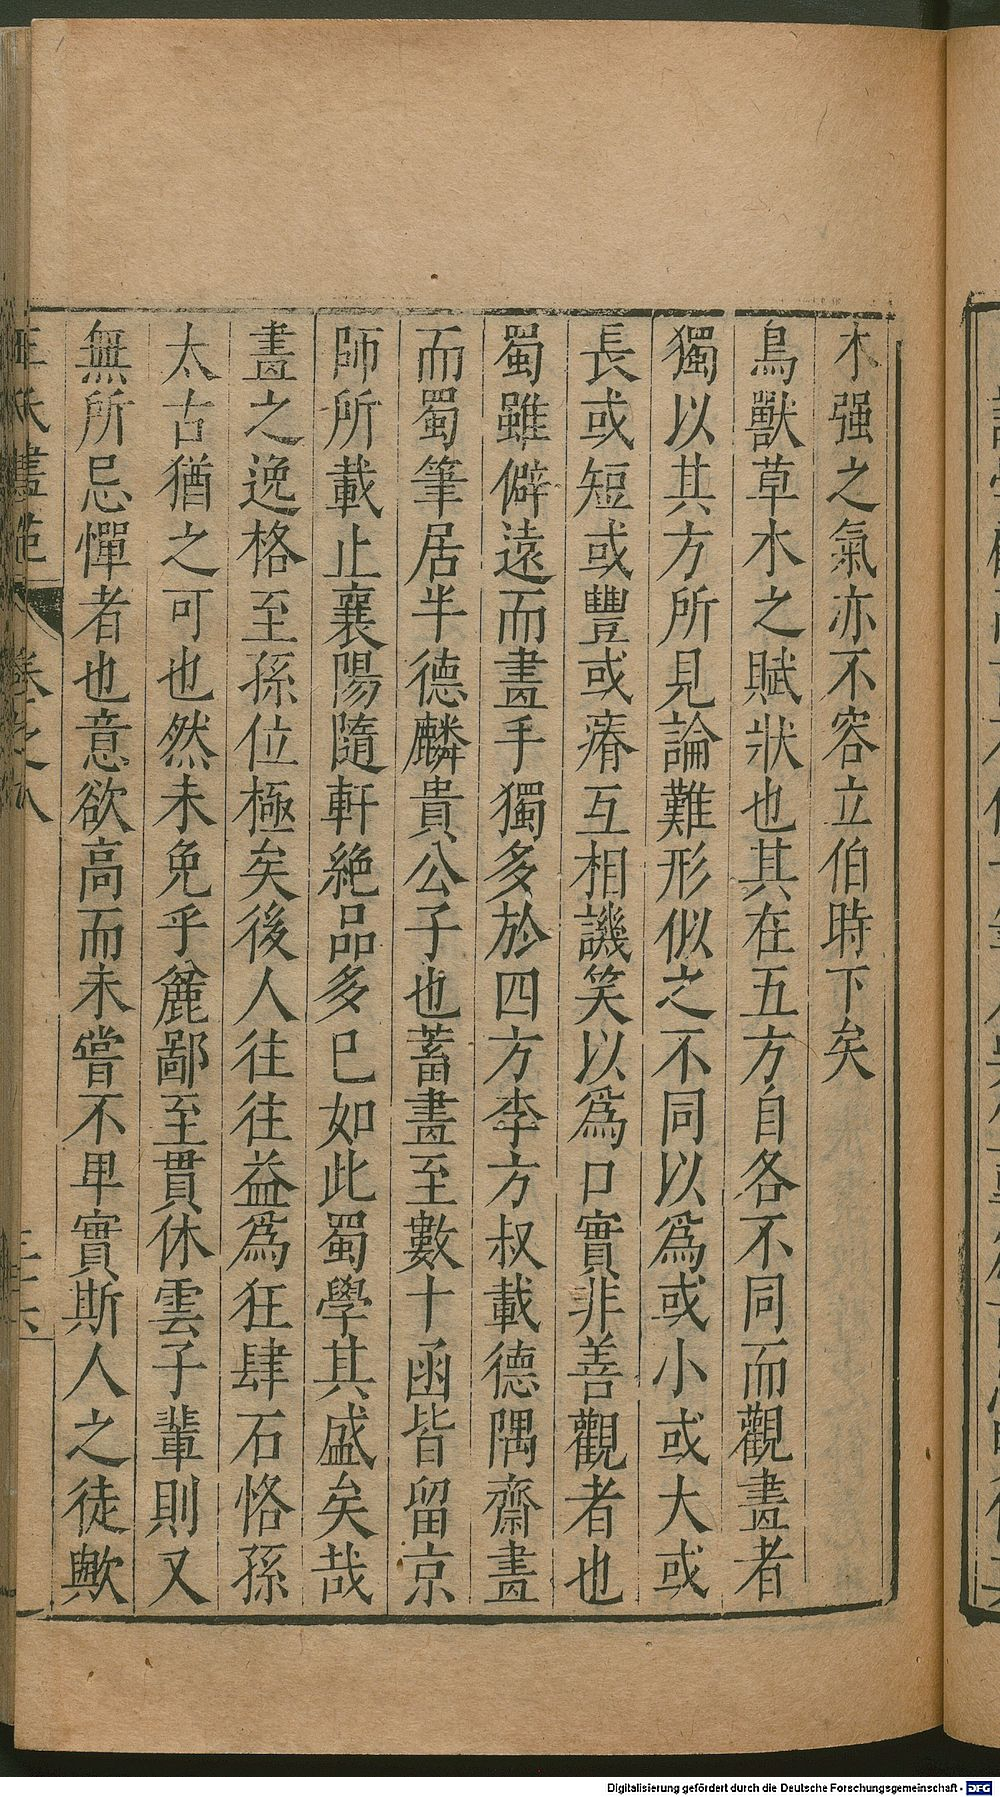 木强之氣亦不容立伯時下矣
鳥獸草木之賦狀也其在五方自各不同而觀畫者
獨以其方所見論難形似之不同以爲或小或大或
長或短或豐或瘠互相譏笑以爲口實非善觀者也
蜀雖僻遠而畫手獨多於四方李方叔載德隅齋畫
而蜀筆居半德麟貴公子也蓄畫至數十函皆留京
師所載止襄陽隨軒絶品多已如此蜀學其盛矣哉
畫之逸格至孫位極矣後人往往益爲狂肆石恪孫
太古猶之可也然未免乎麄鄙至貫休雲子輩則又
無所忌憚者也意欲高而未嘗不卑實斯人之徒歟
王氏畫苑 卷之八 三十六
Digitalisierung gefördert durch die Deutsche Forschungsgemeinschaft - DFG